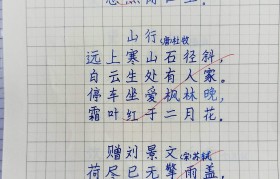 山行 (唐)杜牧
远上寒山石径斜，
白云生处有人家，
停车坐爱枫林晚，
霜叶红于二月花。
赠刘景文 (宋)苏轼
荷尽已无擎雨盖，